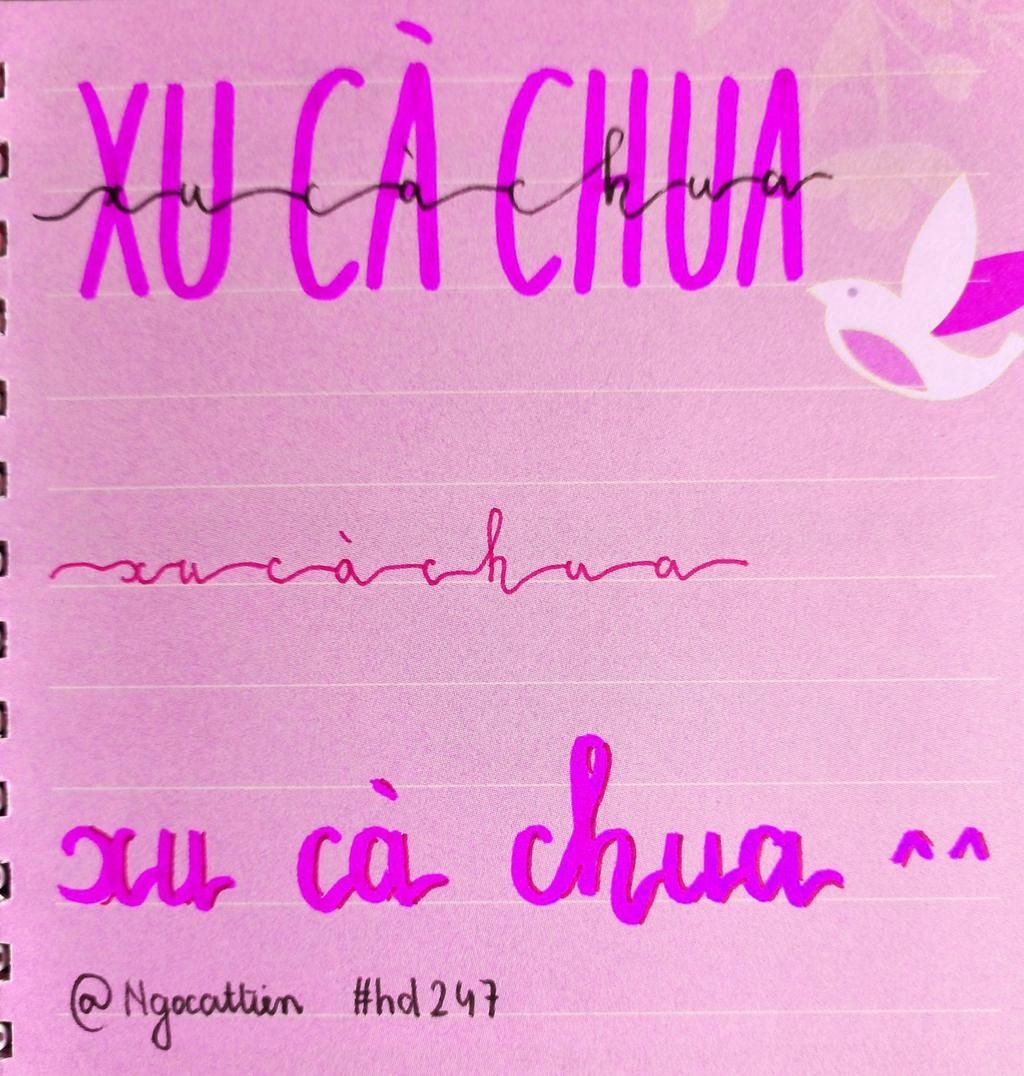 XU CÀ CHUA
xu cà chua
xu cà chua
xu cà chua ^^
@Ngocattien #hd247